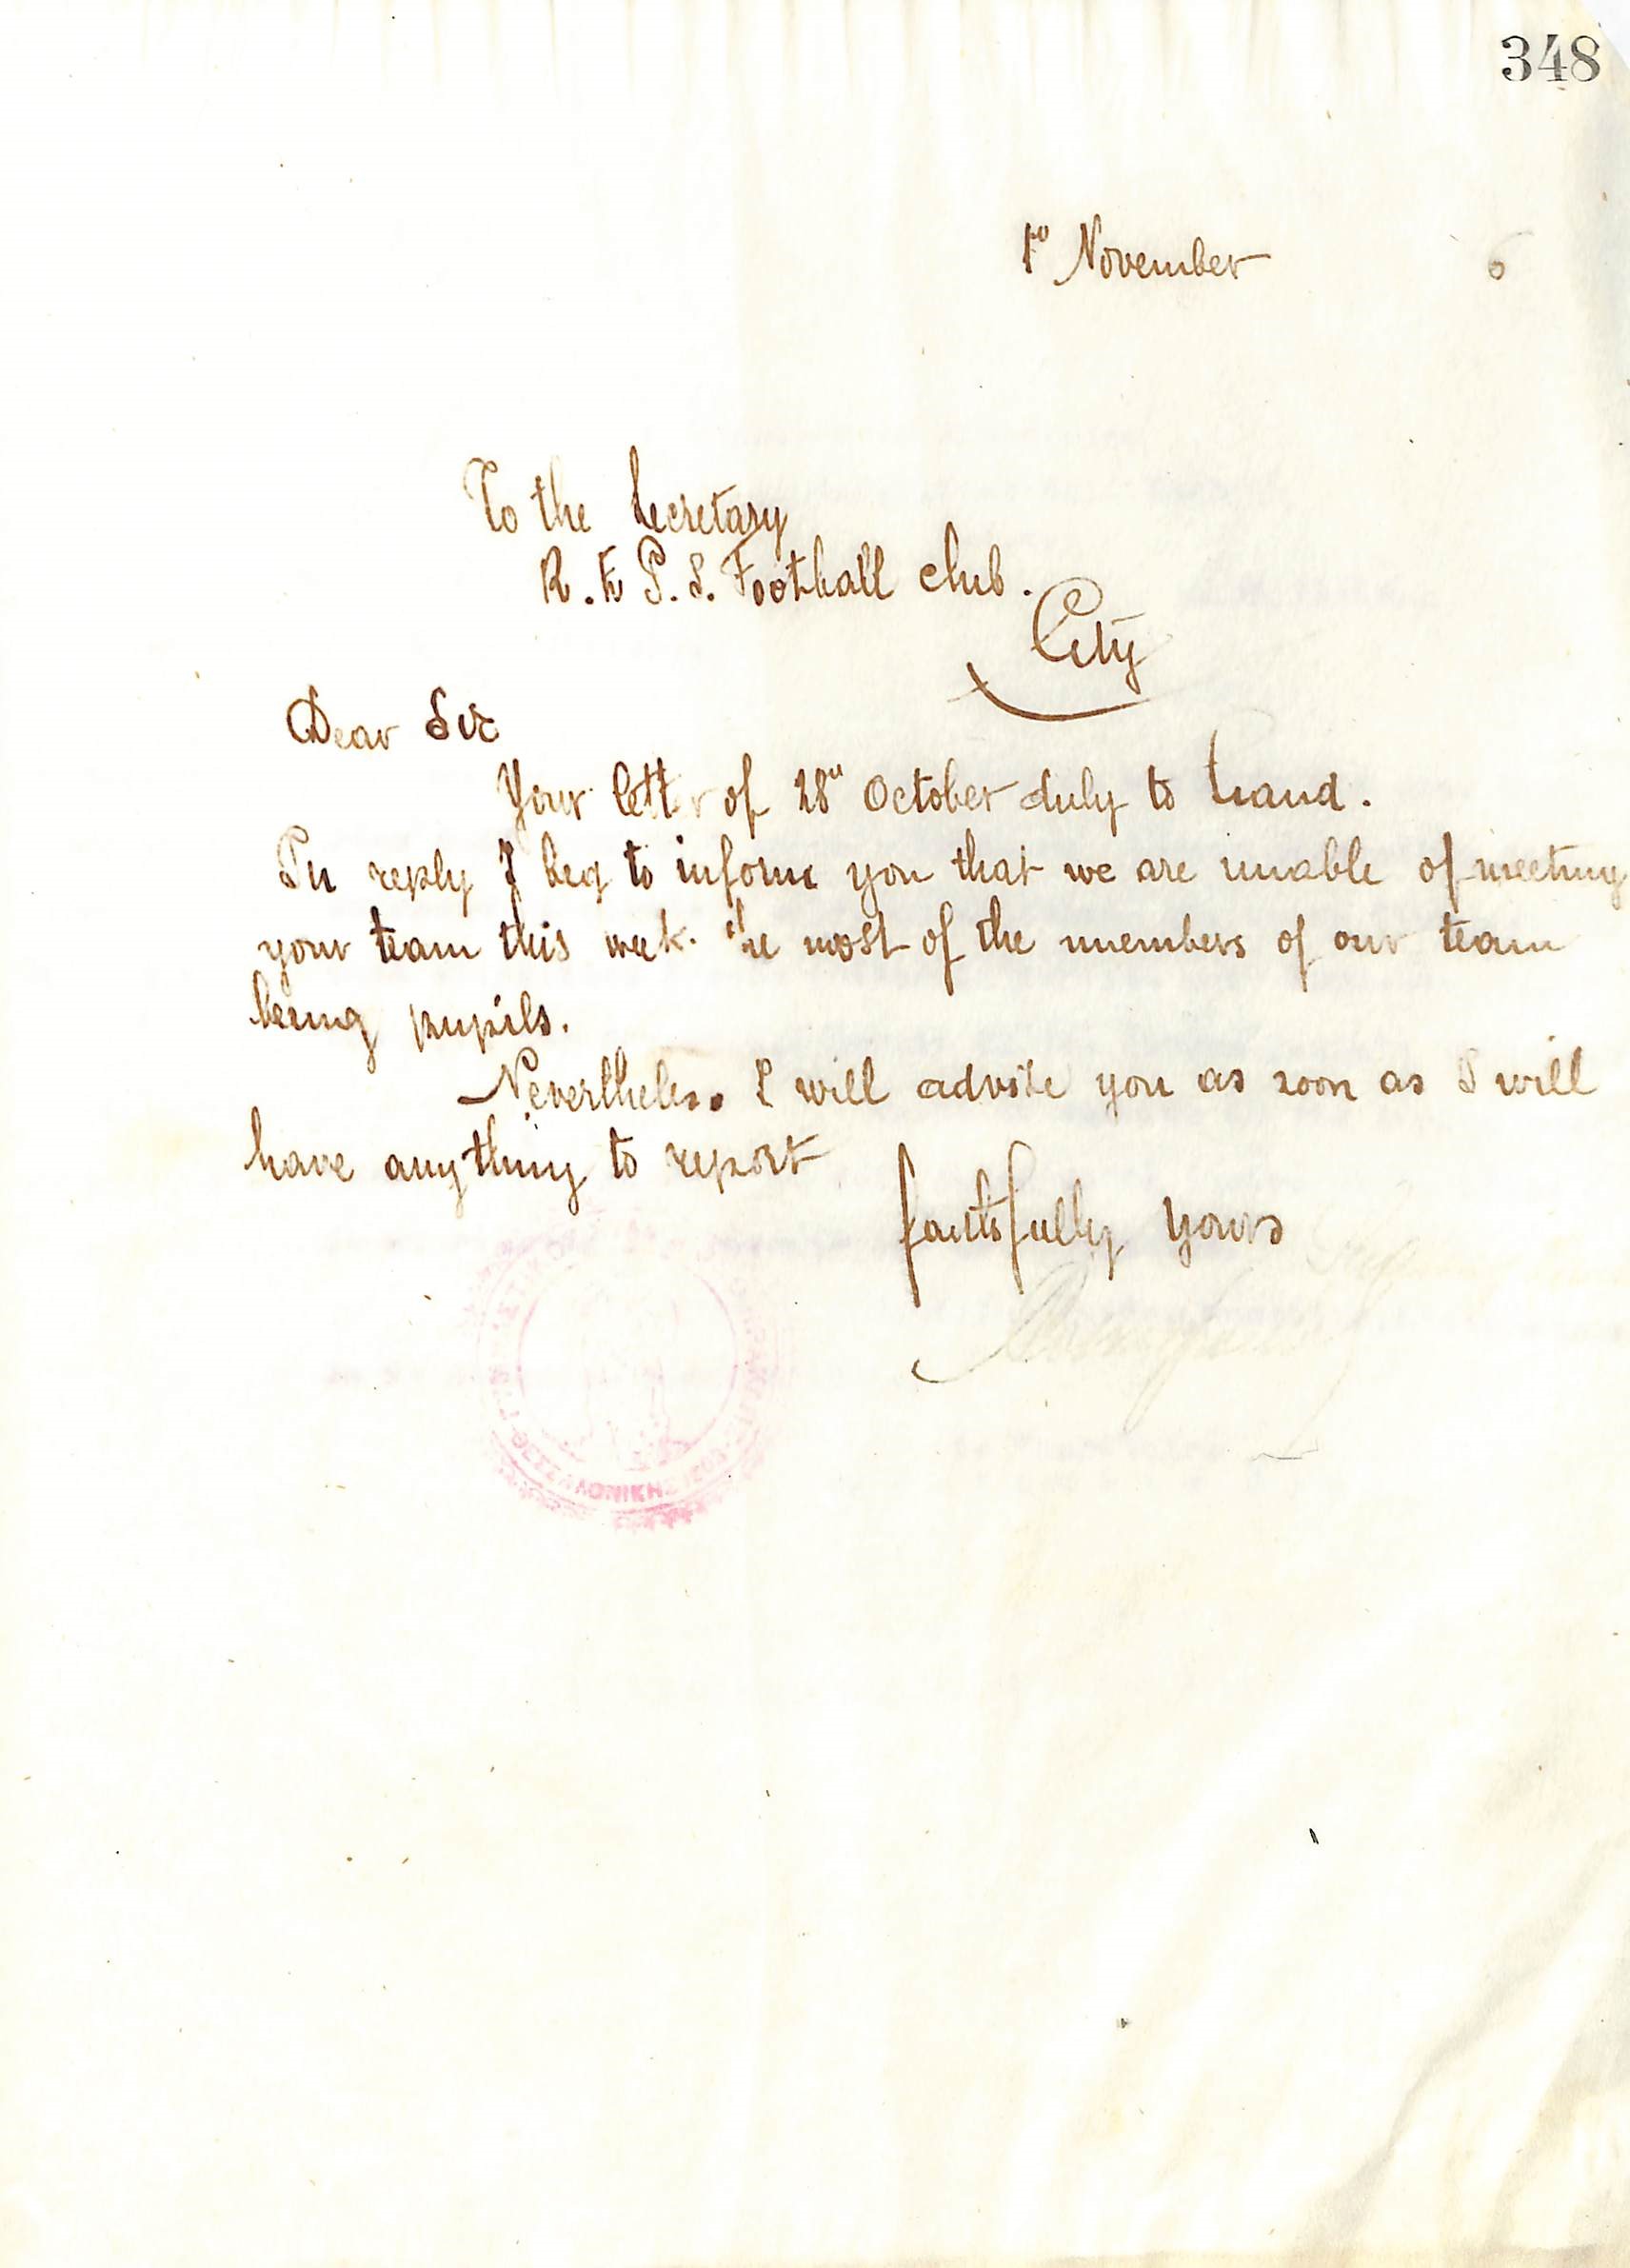 348
1º November 6
To the Secretary
R. E P. S. Football club.
City
Dear Sir
Your letter of 28" October duly to hand.
In reply I beg to inform you that we are unable of meeting
your team this week. the most of the members of our team
being pupils.
Nevertheless I will advise you as soon as I will
have anything to report
faithfully yours
ΘΕΣΣΑΛΟΝΙΚΗΣ